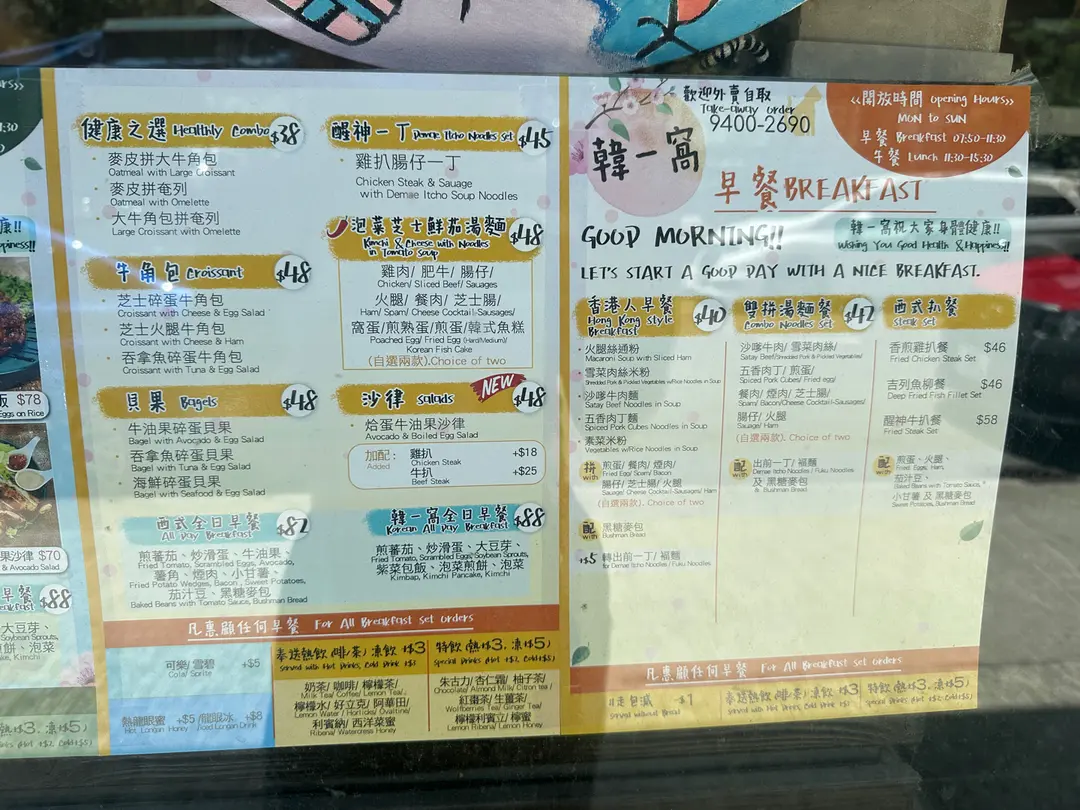 健康之選 Healthly Combo $38
麥皮拼大牛角包
Oatmeal with Large Croissant
麥皮拼奄列
Oatmeal with Omelette
大牛角包拼奄列
Large Croissant with Omelette
牛角包 Croissant $48
芝士碎蛋牛角包
Croissant with Cheese & Egg Salad
芝士火腿牛角包
Croissant with Cheese & Ham
吞拿魚碎蛋牛角包
Croissant with Tuna & Egg Salad
貝果 Bagels $48
牛油果碎蛋貝果
Bagel with Avocado & Egg Salad
吞拿魚碎蛋貝果
Bagel with Tuna & Egg Salad
海鮮碎蛋貝果
Bagel with Seafood & Egg Salad
西式全日早餐 $82
All Day Breakfast
煎蕃茄、炒滑蛋、牛油果、
Fried Tomato, Scrambled Eggs, Avocado,
薯角、煙肉、小甘薯、
Fried Potato Wedges, Bacon, Sweet Potatoes,
茄汁豆、黑糖麥包
Baked Beans with Tomato Sauce, Bushman Bread
醒神一丁 Demae Itcho Noodles Set $45
雞扒腸仔一丁
Chicken Steak & Sauage
with Demae Itcho Soup Noodles
泡菜芝士鮮茄湯麵 $48
Kimchi & Cheese with Noodles
in Tomato Soup
雞肉/ 肥牛/ 腸仔/
Chicken/ Sliced Beef/ Sauages
火腿/ 餐肉/ 芝士腸/
Ham/ Spam/ Cheese Cocktail-Sausages/
窩蛋/煎熟蛋/煎蛋/韓式魚糕
Poached Egg/ Fried Egg (Hard/Medium)/
Korean Fish Cake
(自選兩款).Choice of two
NEW
沙律 Salads $48
烚蛋牛油果沙律
Avocado & Boiled Egg Salad
加配: 雞扒 +$18
Added Chicken Steak
牛扒 +$25
Beef Steak
韓一窩全日早餐 $88
Korean All Day Breakfast
煎蕃茄、炒滑蛋、大豆芽、
Fried Tomato, Scrambled Eggs, Soybean Sprouts,
紫菜包飯、泡菜煎餅、泡菜
Kimbap, Kimchi Pancake, Kimchi
凡惠顧任何早餐 For All Breakfast set orders
可樂/雪碧 +$5
Cola/ Sprite
熱龍眼蜜 +$5 /龍眼冰 +$8
Hot Longan Honey / Iced Longan Drink
奉送熱飲 (啡/茶) 凍飲 +$3
Served with Hot Drinks, Cold Drink +$3
奶茶/ 咖啡/ 檸檬茶/
Milk Tea/ Coffee/ Lemon Tea/
檸檬水/ 好立克/ 阿華田/
Lemon Water / Horlicks/ Ovaltine/
利賓納/ 西洋菜蜜
Ribena/ Watercress Honey
特飲 (熱+$3. 凍+$5)
Special Drinks (Hot +$3, Cold +$5)
朱古力/ 杏仁霜/ 柚子茶/
Chocolate/ Almond Milk/ Citron tea /
紅棗茶/ 生薑茶/
Wolfberries Tea/ Ginger Tea/
檸檬利賓立/ 檸蜜
Lemon Ribena/ Lemon Honey
韓一窩
歡迎外賣自取
Take-away order
9400-2690
<<開放時間 Opening Hours>>
MON to SUN
早餐 Breakfast 07:50-11:30
午餐 Lunch 11:30-15:30
早餐BREAKFAST
GOOD MORNING!!
韓一窩祝大家身體健康!!
Wishing You Good Health & Happiness!!
LET'S START A GOOD DAY WITH A NICE BREAKFAST.
香港人早餐 $40
Hong Kong Style
Breakfast
火腿絲通粉
Macaroni Soup with Sliced Ham
雪菜肉絲米粉
Shredded Pork & Pickled Vegetables w/Rice Noodles in Soup
沙嗲牛肉麵
Satay Beef Noodles in Soup
五香肉丁麵
Spiced Pork Cubes Noodles in Soup
素菜米粉
Vegetables w/Rice Noodles in Soup
拼 with 煎蛋/ 餐肉/ 煙肉/
Fried Egg/ Spam/ Bacon
腸仔/ 芝士腸/ 火腿
Sauage/ Cheese Cocktail-Sausages/ Ham
(自選兩款). Choice of two
配 with 黑糖麥包
Bushman Bread
+$5 轉出前一丁/ 福麵
for Demae Itcho Noodles / Fuku Noodles
雙拼湯麵餐 $42
Combo Noodles Set
沙嗲牛肉/ 雪菜肉絲/
Satay Beef/Shredded Pork & Pickled Vegetables/
五香肉丁/ 煎蛋/
Spiced Pork Cubes/ Fried egg/
餐肉/ 煙肉/ 芝士腸/
Spam/ Bacon/Cheese Cocktail-Sausages/
腸仔/ 火腿
Sauage/ Ham
(自選兩款). Choice of two
配 with 出前一丁/ 福麵
Demae Itcho Noodles / Fuku Noodles
及 黑糖麥包
& Bushman Bread
西式扒餐
Steak Set
香煎雞扒餐 $46
Fried Chicken Steak Set
吉列魚柳餐 $46
Deep Fried Fish Fillet Set
醒神牛扒餐 $58
Fried Steak Set
配 with 煎蛋、火腿、
Fried Eggs, Ham,
茄汁豆、
Baked Beans with Tomato Sauce,
小甘薯 及 黑糖麥包
Sweet Potatoes, Bushman Bread
凡惠顧任何早餐 For All Breakfast set orders
走包減 -$1
Served without Bread
奉送熱飲 (啡/茶) 凍飲 +$3
Served with Hot Drinks, Cold Drink +$3
特飲 (熱+$3. 凍+$5)
Special Drinks (Hot +$3, Cold +$5)
飯 $78
Eggs on Rice
果沙律 $70
& Avocado Salad
早餐 $88
大豆芽、
Soybean Sprouts,
煎餅、泡菜